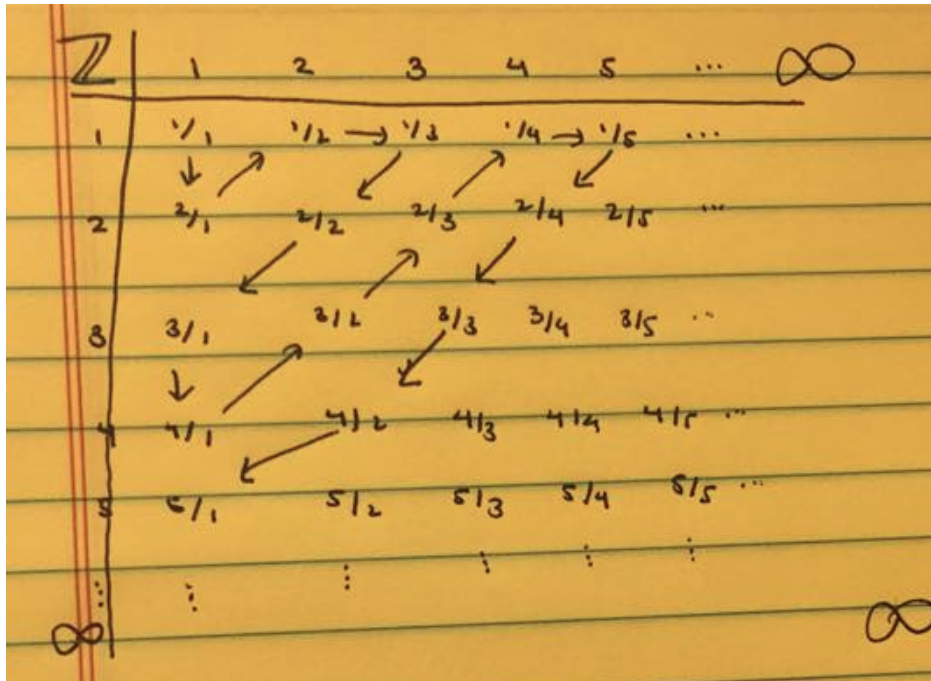 ℤ 1 2 3 4 5 ... ∞
1 1/1 1/2 → 1/3 1/4 → 1/5 ...
↓ ↗ ↙ ↗ ↙
2 2/1 2/2 2/3 2/4 2/5 ...
↙ ↗ ↙
3 3/1 3/2 3/3 3/4 3/5 ..
↓ ↗ ↙
4 4/1 4/2 4/3 4/4 4/5 ...
↙
5 5/1 5/2 5/3 5/4 5/5 ...
⋮ ⋮ ⋮ ⋮ ⋮ ⋮
∞ ∞